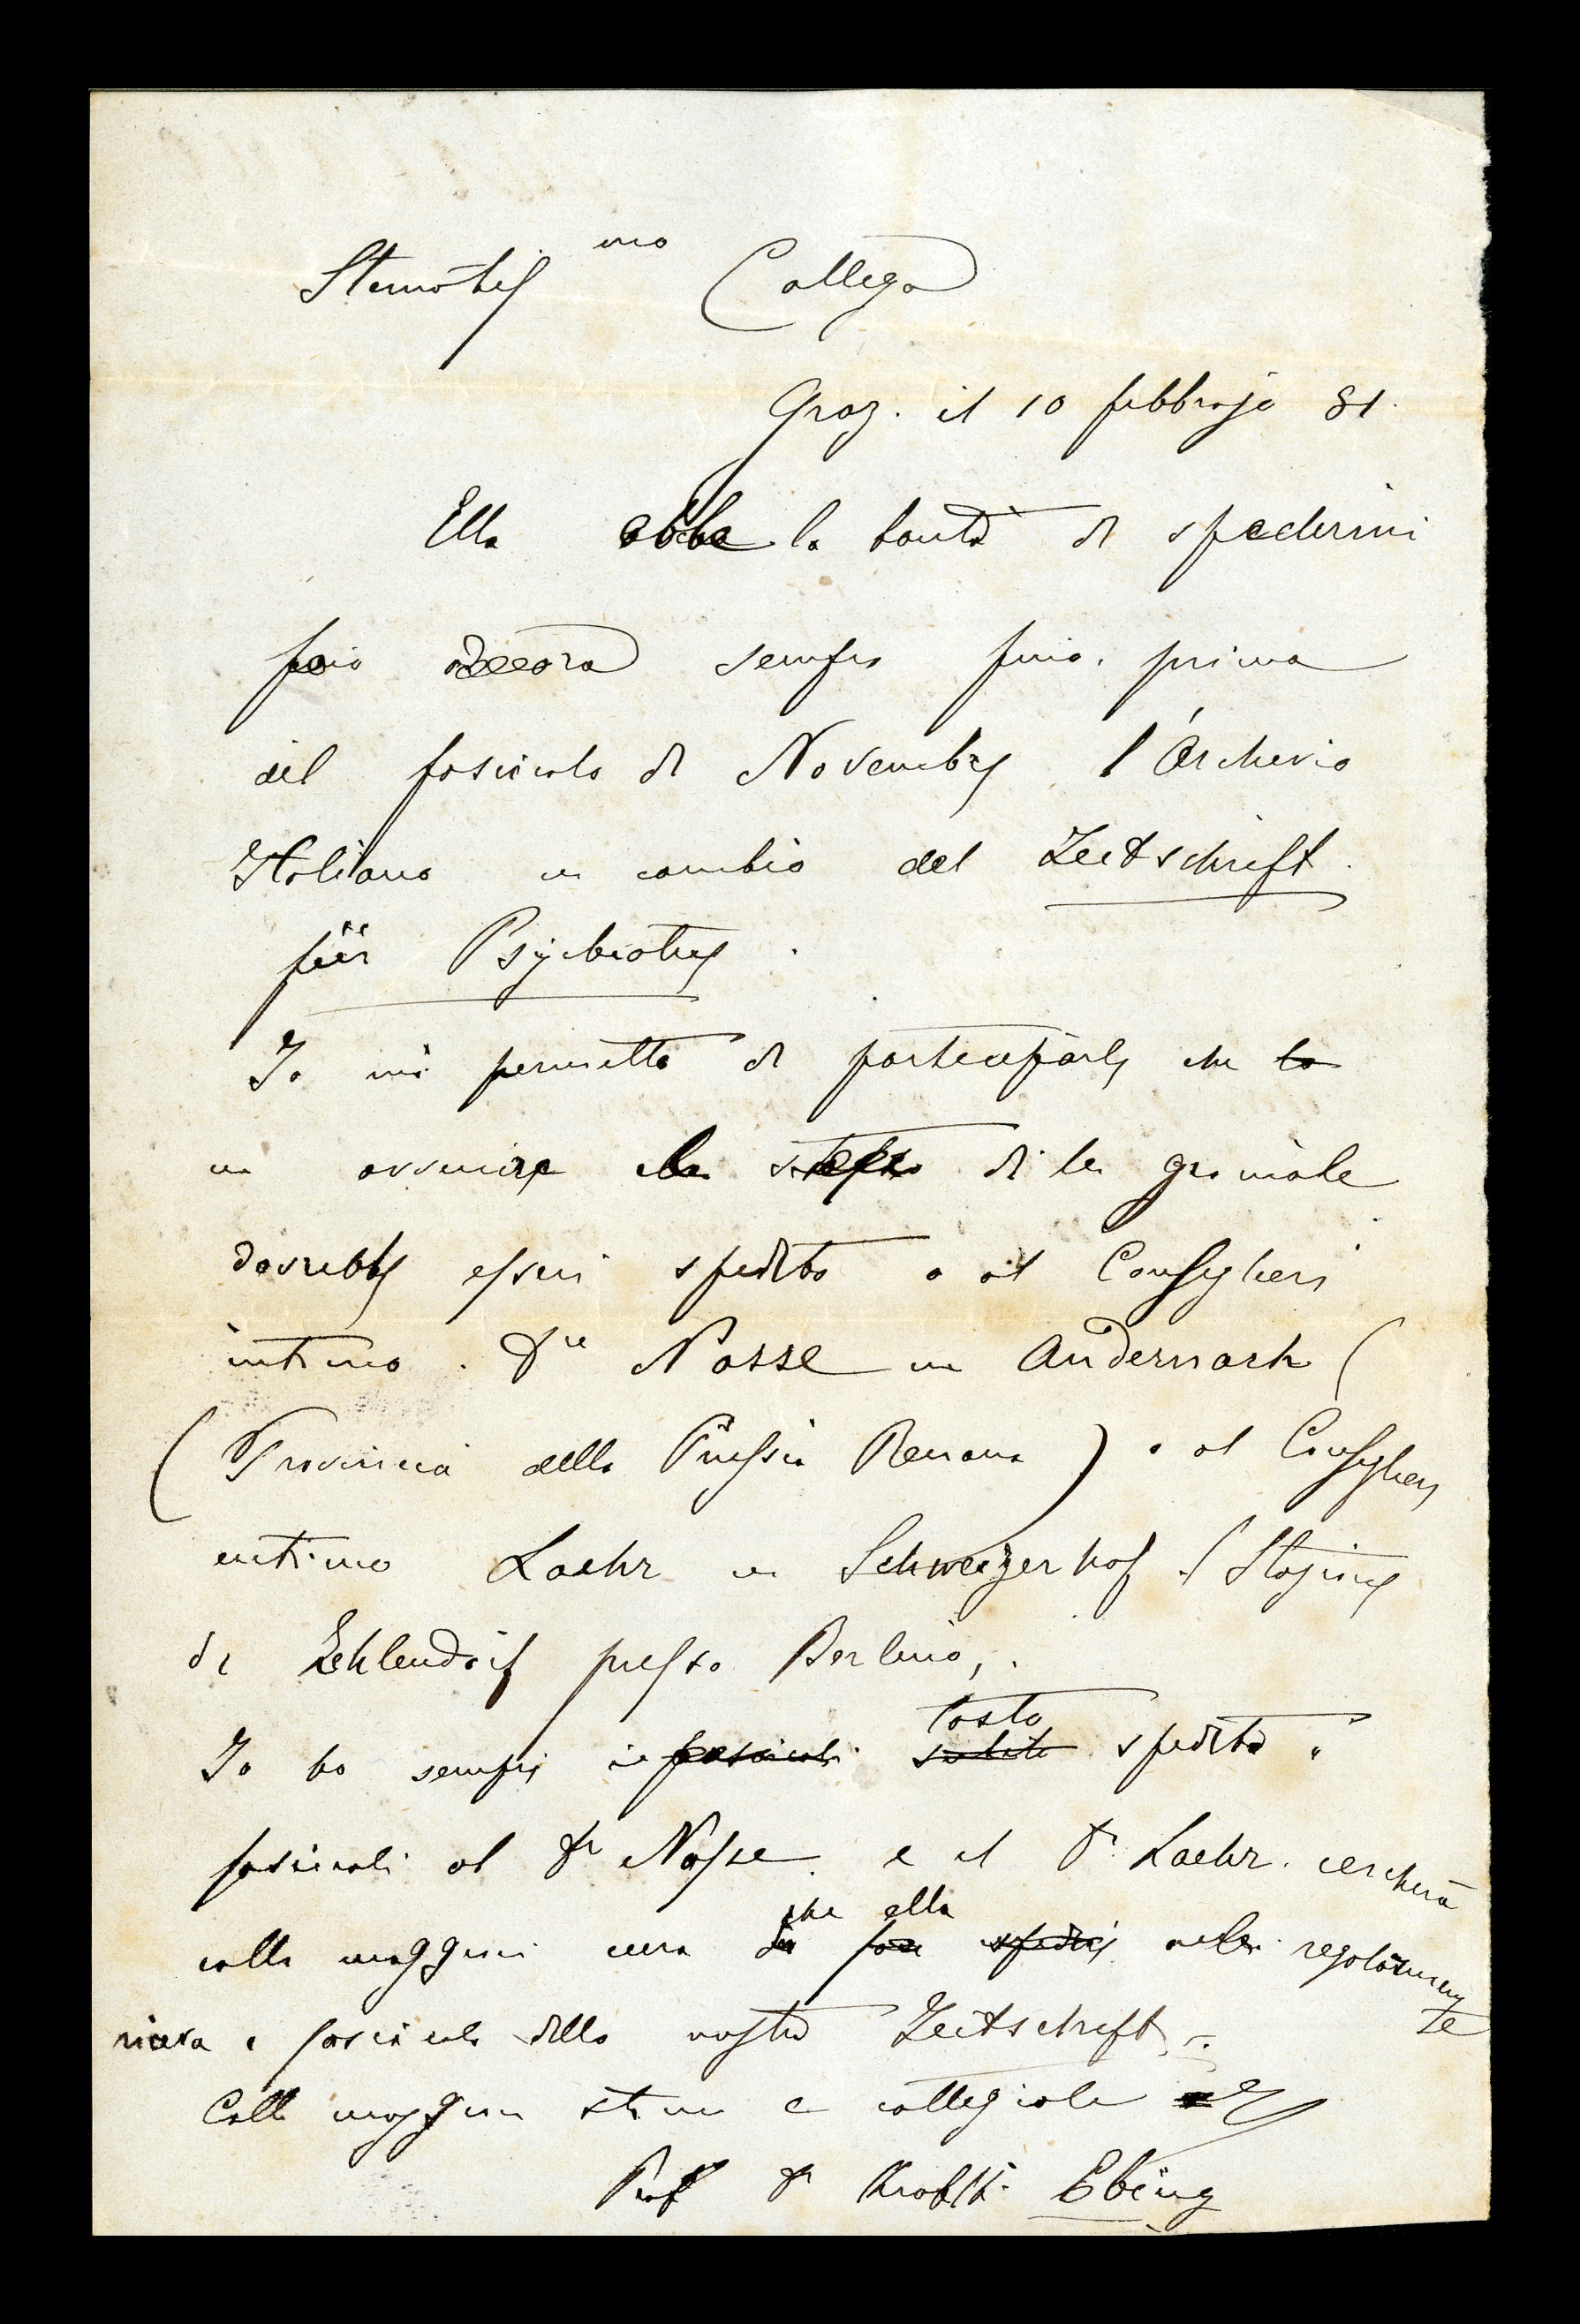 Stimatiss mo Collega
Graz. il 10 febbrajo 81.
Ella ebbe la bontà di spedermi
sempre fino. prima
del fascicolo di Novembre l'Archivio
Italiano in cambio del Zeitschrift
für Psychiatrie.
Io mi permetto di parteciparle che la
in avvenire lo stesso di lei gionale
dovrebbe essere spedito o al Consigliere
intimo. Dre Nasse in Andernach (
(Provincia della Prussia Renana) o al Consigliere
intimo Laehr in Schweizerhof (Stazione
di Zehlendorf presso Berlino,.
Io ho sempre i fascicoli subito tosto spedito i
fascicoli al Dr Nasse. e il Dr. Laehr. cercherà
colla maggiore cura che ella regolarmen
te
riceva i fascicoli della nostra Zeitschrift.
Colla maggiore stima e collegiale
Prof Dr Krafft-Ebing